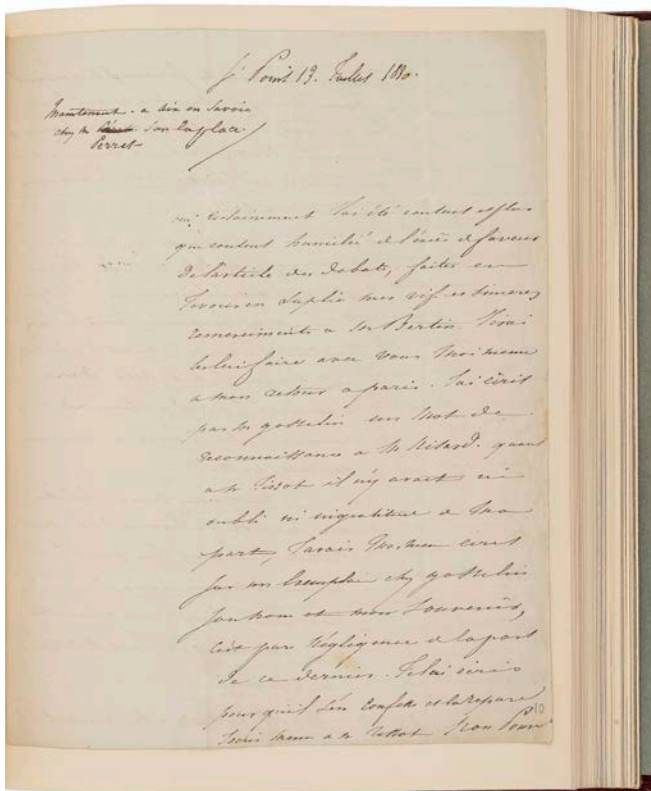 St Point 13. Juillet 1830.
Maintenant a aix en Savoie
chez M Perret sur la place.
oui certainement J'ai été content et plus
que content humilié de l'excès de faveur
de l'article des Debats, faites en
Je vous en Suplie mes vifs et sinceres
remerciments a Mr Bertin. J'irai
les lui faire avec vous Moi meme
a mon retour a paris. J'ai écrit
par M gosselin un Mot de
reconnaissance a M. quant
a M il n'y avait ni
oubli ni ingratitude de Ma
part, J'avais Moi meme ecrit
sur un Exemplaire chez gosselin
son nom et mon Souvenir,
c'est par Négligence de la part
de ce dernier. Je lui écris
pour qu'il s'en Confesse et la repare
J'ecris meme a M
10